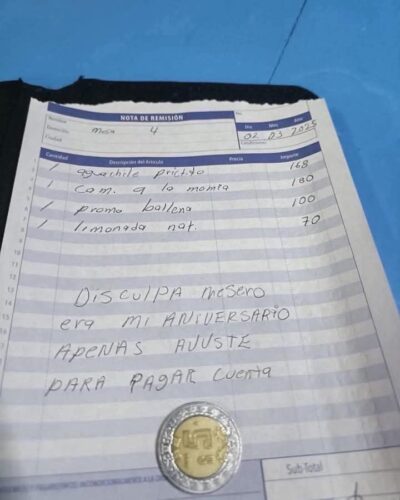 NOTA DE REMISIÓN
No.
Nombre
Domicilio
Ciudad
mesa 4
Día Mes Año
02 03 2025
Condiciones
Cantidad Descripción del Artículo Precio Importe
1 aguachile prietito 168
1 Cam. a la momia 180
1 promo ballena 100
1 limonada nat. 70
DISCULPA mesero
era MI ANIVERSARIO
APENAS AJUSTE
PARA PAGAR cuenta
$5
Sub-Total